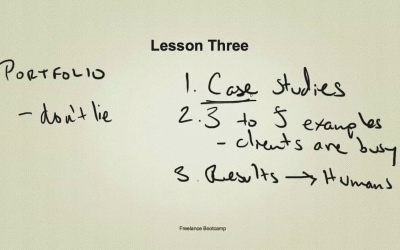 Lesson Three
PORTFOLIO
- don't lie
1. Case studies
2. 3 to 5 examples
- clients are busy
3. Results → Humans
Freelance Bootcamp